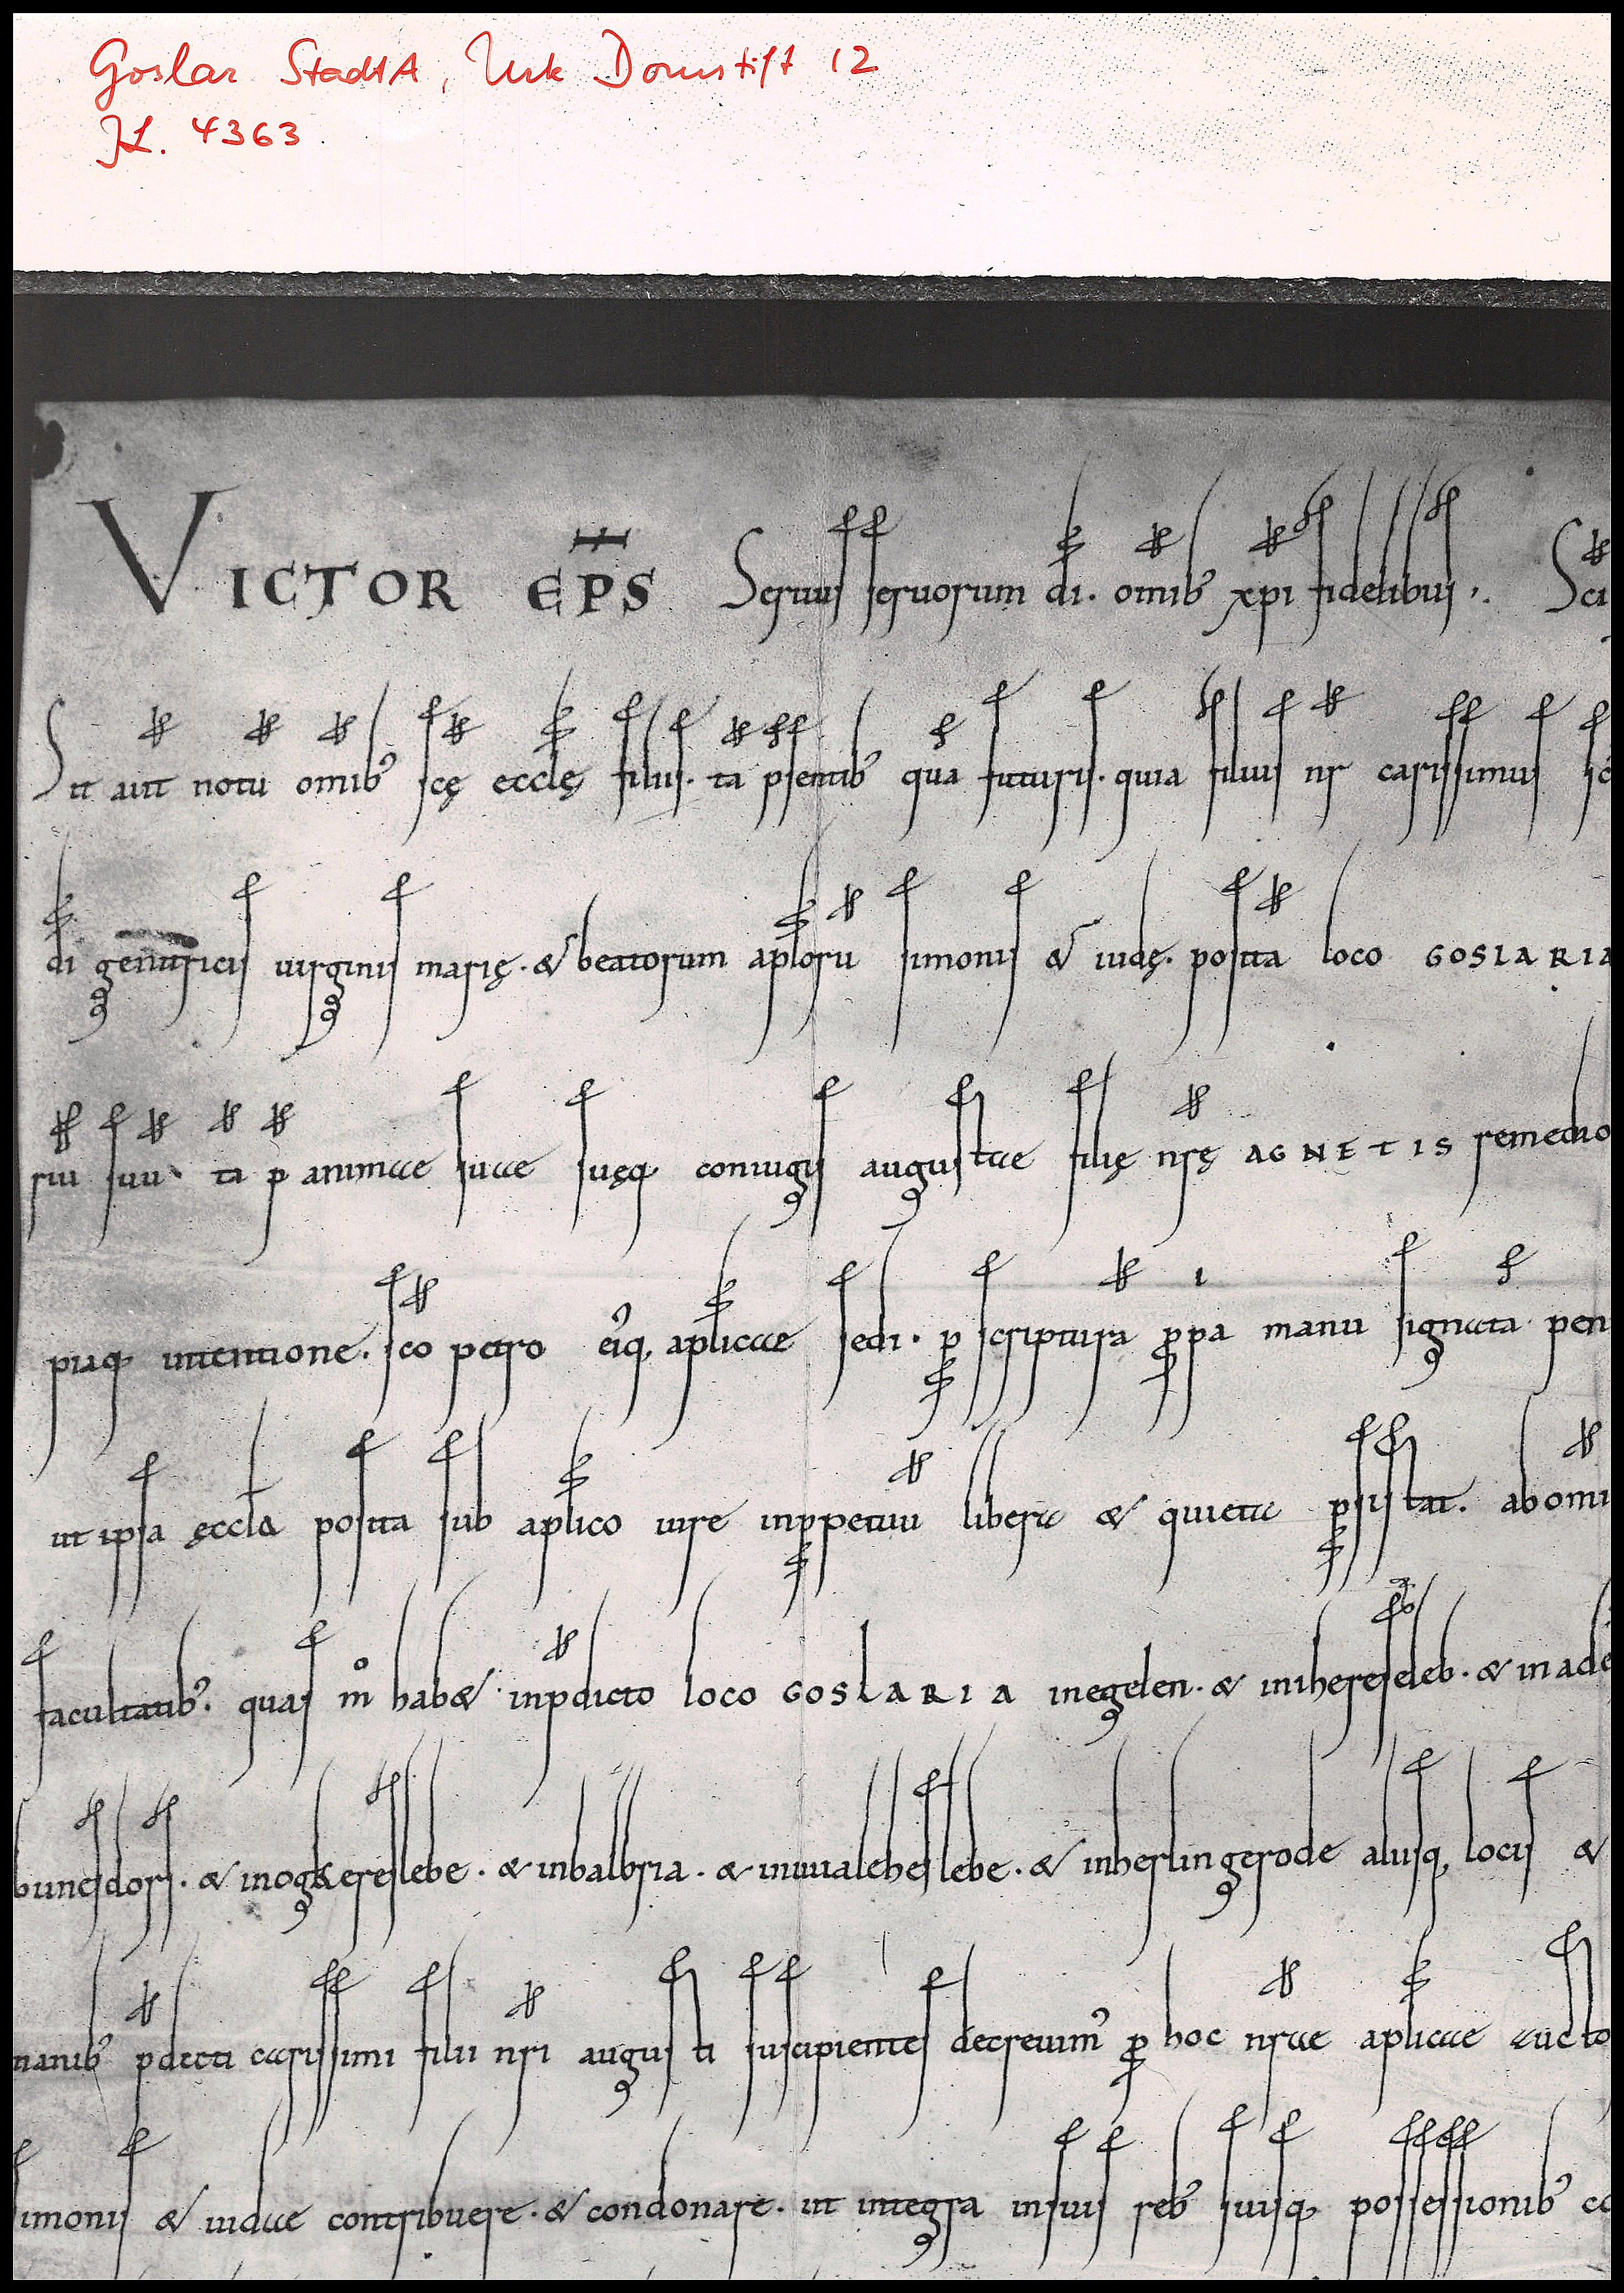 Goslar StadtA, Urk Domstift 12
JL. 4363.
VICTOR EPS Seruus seruorum di. omib' xpi fidelibus. Sci
Sit aut notu omib' scę ecclę filiis. ta psentib' qua futuris. quia filius nr carissimus sc
di genitricis uirginis marię. & beatorum aploru simonis & iudę. posita loco GOSLARIA
riu suu. ta p animae suae suęq coniugis augustae filię nrę AGNETIS remedio
piaq intentione. sco petro eiq, aplicae sedi. p scriptura ppa manu signata pen
ut ipsa ęccla posita sub aplico iure inppetuu libera & quieta psistat. abomi
facultatib'. quas m habet. inpdicto loco GOSLARIA inegelen. & inihereseleb. & inade
bunesdors. & inogkereslebe. & inbalbria. & inuualeheslebe. & inherlingerode aliisq, locis &
manib' pdicti carissimi filii nri augusti suscipientes decreuim' p hoc nrae aplicae aucto
simonis & iudae contribuere. & condonare. ut integra insuis reb' suisq possessionib' co